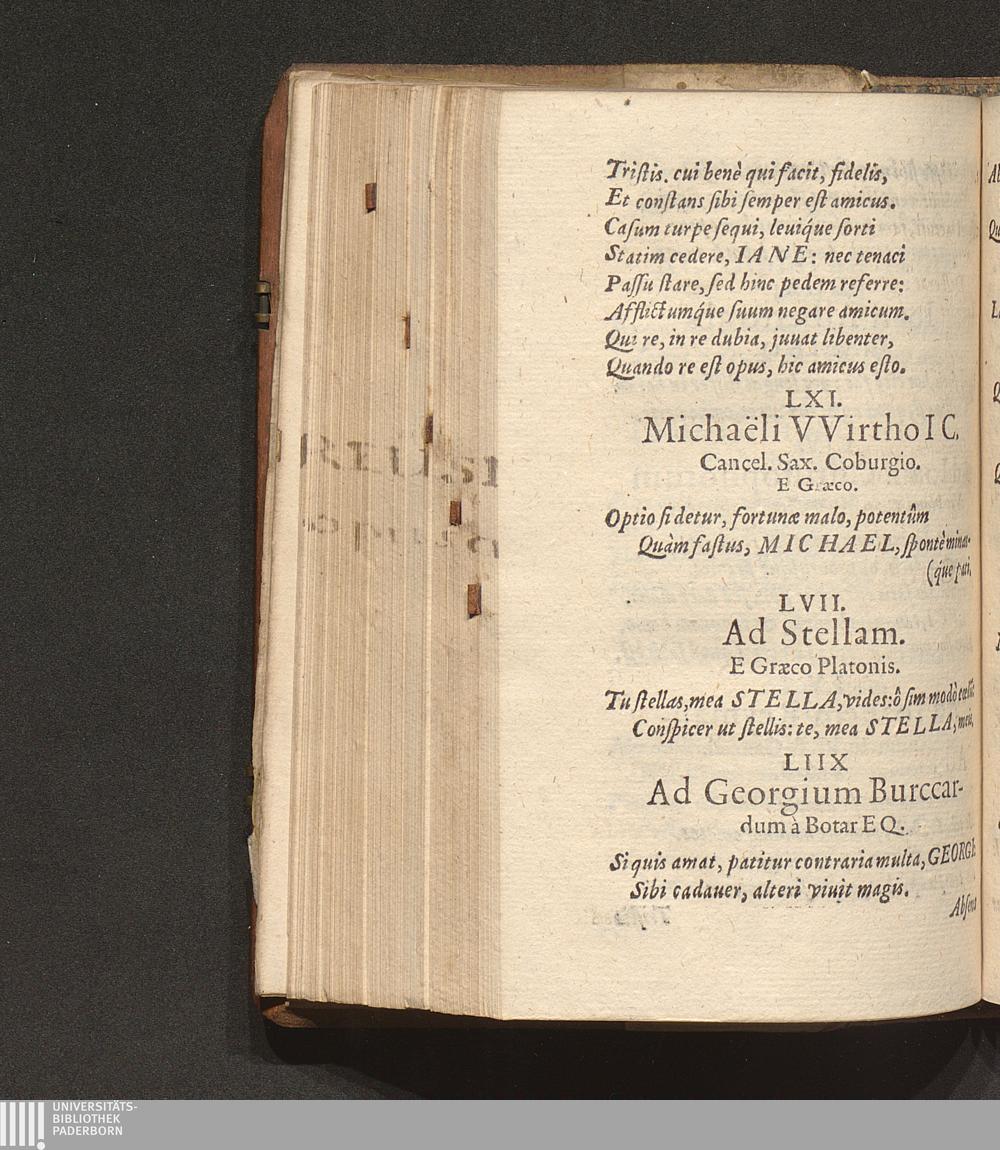 Tristis. cui benè qui facit, fidelis,
Et constans sibi semper est amicus.
Casum turpe sequi, leuiq́ue sorti
Statim cedere, IANE: nec tenaci
Passu stare, sed hinc pedem referre:
Afflictumq́ue suum negare amicum.
Qui re, in re dubia, juuat libenter,
Quando re est opus, hic amicus esto.
LXI.
Michaëli VVirtho IC,
Cancel. Sax. Coburgio.
E Græco.
Optio si detur, fortunæ malo, potentûm
Quàm fastus, MICHAEL, spontè minas-
(q́ue pati,
LVII.
Ad Stellam.
E Græco Platonis.
Tu stellas, mea STELLA, vides: ô sim modò
Conspicer ut stellis: te, mea STELLA, meis,
LIIX
Ad Georgium Burccar-
dum à Botar EQ.
Si quis amat, patitur contraria multa, GEORGE
Sibi cadauer, alteri viuit magis.
Absens
UNIVERSITÄTS-
BIBLIOTHEK
PADERBORN